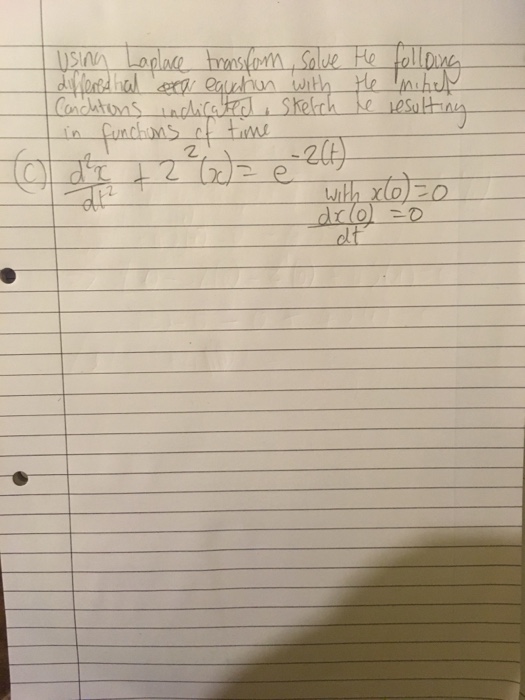 Using Laplace transform, solve the following
differential equation with the initial
Conditions indicated. Sketch the resulting
in functions of time
(C) d²x/dt² + 2²(x) = e^-2(t)
with x(0)=0
dx(0)/dt =0